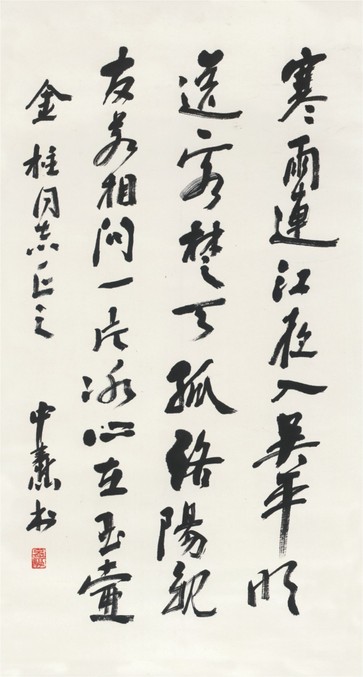 寒雨連江夜入吳平明
送客楚天孤洛陽親
友若相問一片冰心在玉壺
金柱同志正之
中